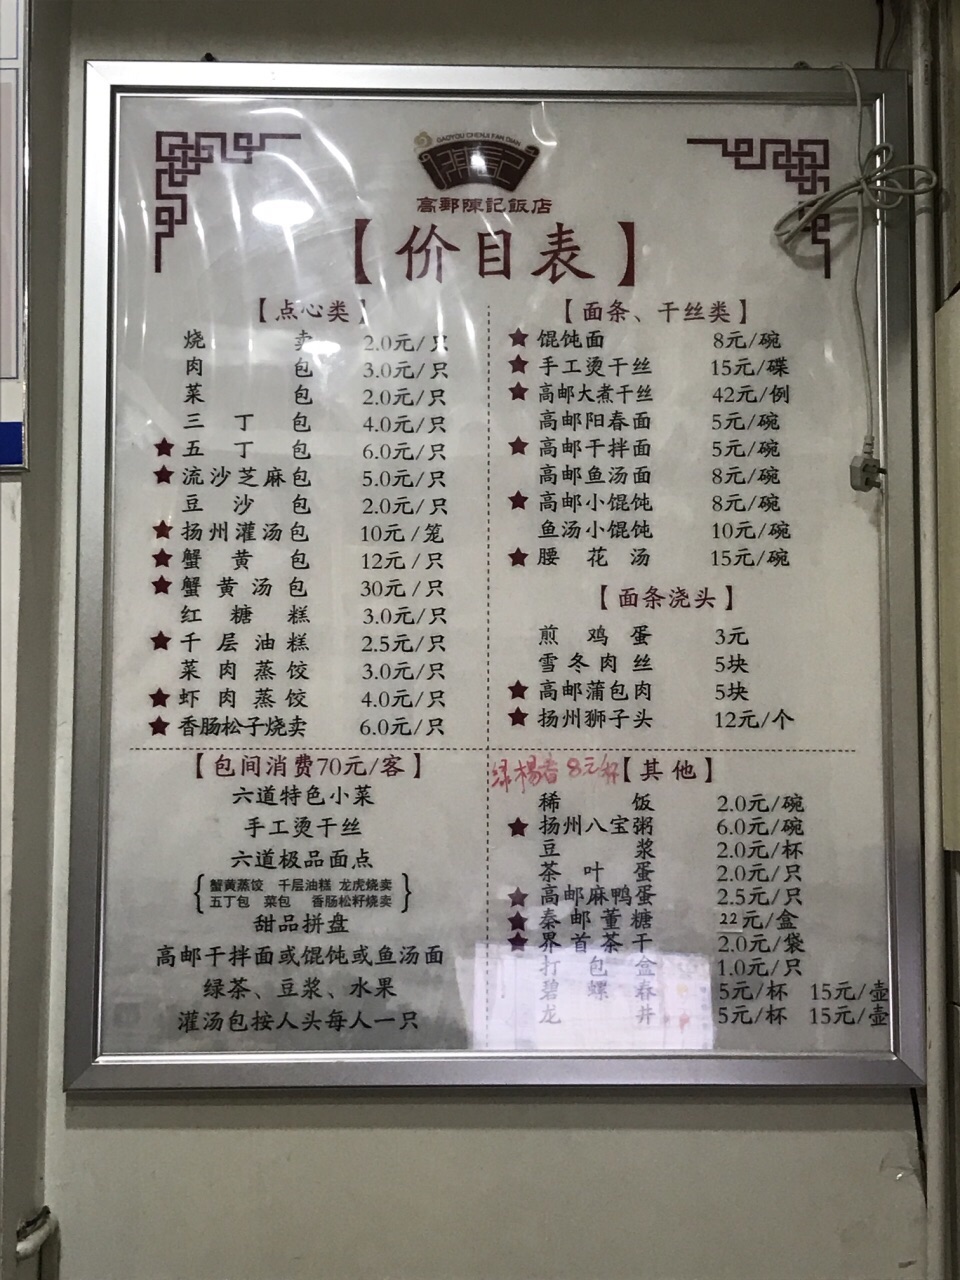 GAOYOU CHENJI FAN DIAN
陳記
高郵陳記飯店
【价目表】
【点心类】
烧卖 2.0元/只
肉包 3.0元/只
菜包 2.0元/只
三丁包 4.0元/只
★五丁包 6.0元/只
★流沙芝麻包 5.0元/只
豆沙包 2.0元/只
★扬州灌汤包 10元/笼
★蟹黄包 12元/只
★蟹黄汤包 30元/只
红糖糕 3.0元/只
★千层油糕 2.5元/只
菜肉蒸饺 3.0元/只
★虾肉蒸饺 4.0元/只
★香肠松子烧卖 6.0元/只
【面条、干丝类】
★馄饨面 8元/碗
★手工烫干丝 15元/碟
★高邮大煮干丝 42元/例
高邮阳春面 5元/碗
★高邮干拌面 5元/碗
高邮鱼汤面 8元/碗
★高邮小馄饨 8元/碗
鱼汤小馄饨 10元/碗
★腰花汤 15元/碗
【面条浇头】
煎鸡蛋 3元
雪冬肉丝 5块
★高邮蒲包肉 5块
★扬州狮子头 12元/个
【包间消费70元/客】
六道特色小菜
手工烫干丝
六道极品面点
蟹黄蒸饺 千层油糕 龙虎烧卖
五丁包 菜包 香肠松籽烧卖
甜品拼盘
高邮干拌面或馄饨或鱼汤面
绿茶、豆浆、水果
灌汤包按人头每人一只
绿杨春 8元/杯
【其他】
稀饭 2.0元/碗
★扬州八宝粥 6.0元/碗
豆浆 2.0元/杯
茶叶蛋 2.0元/只
★高邮麻鸭蛋 2.5元/只
★秦邮董糖 22元/盒
★界首茶干 2.0元/袋
打包盒 1.0元/只
碧螺春 5元/杯 15元/壶
龙井 5元/杯 15元/壶